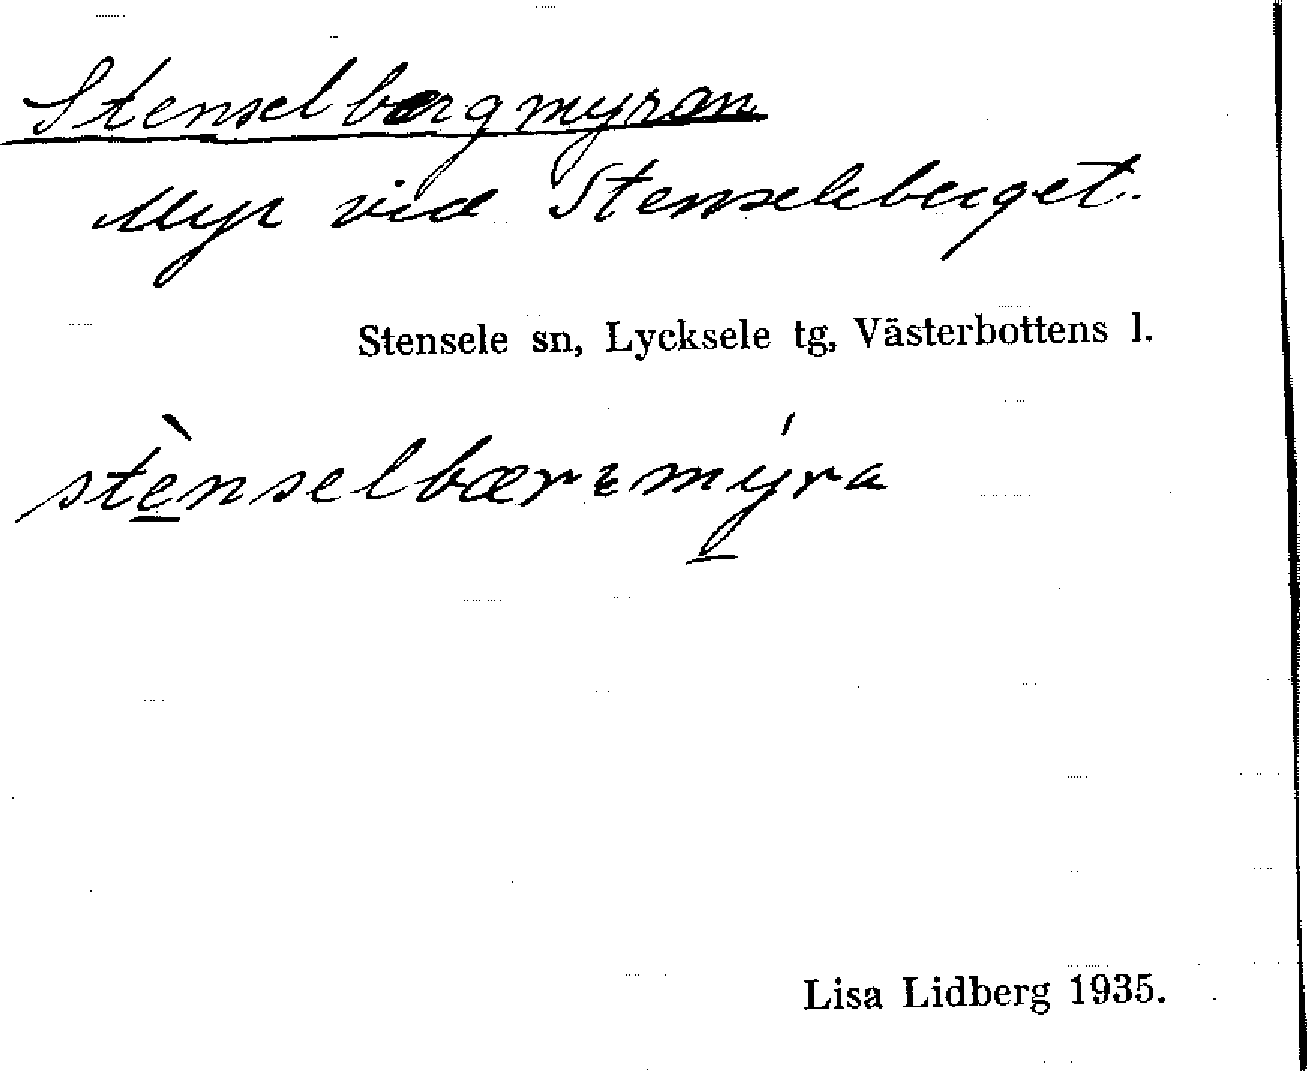 Stenselbergmyran
Myr vid Stenseleberget.
Stensele sn, Lycksele tg, Västerbottens l.
stènselbærɛmýra
Lisa Lidberg 1935.